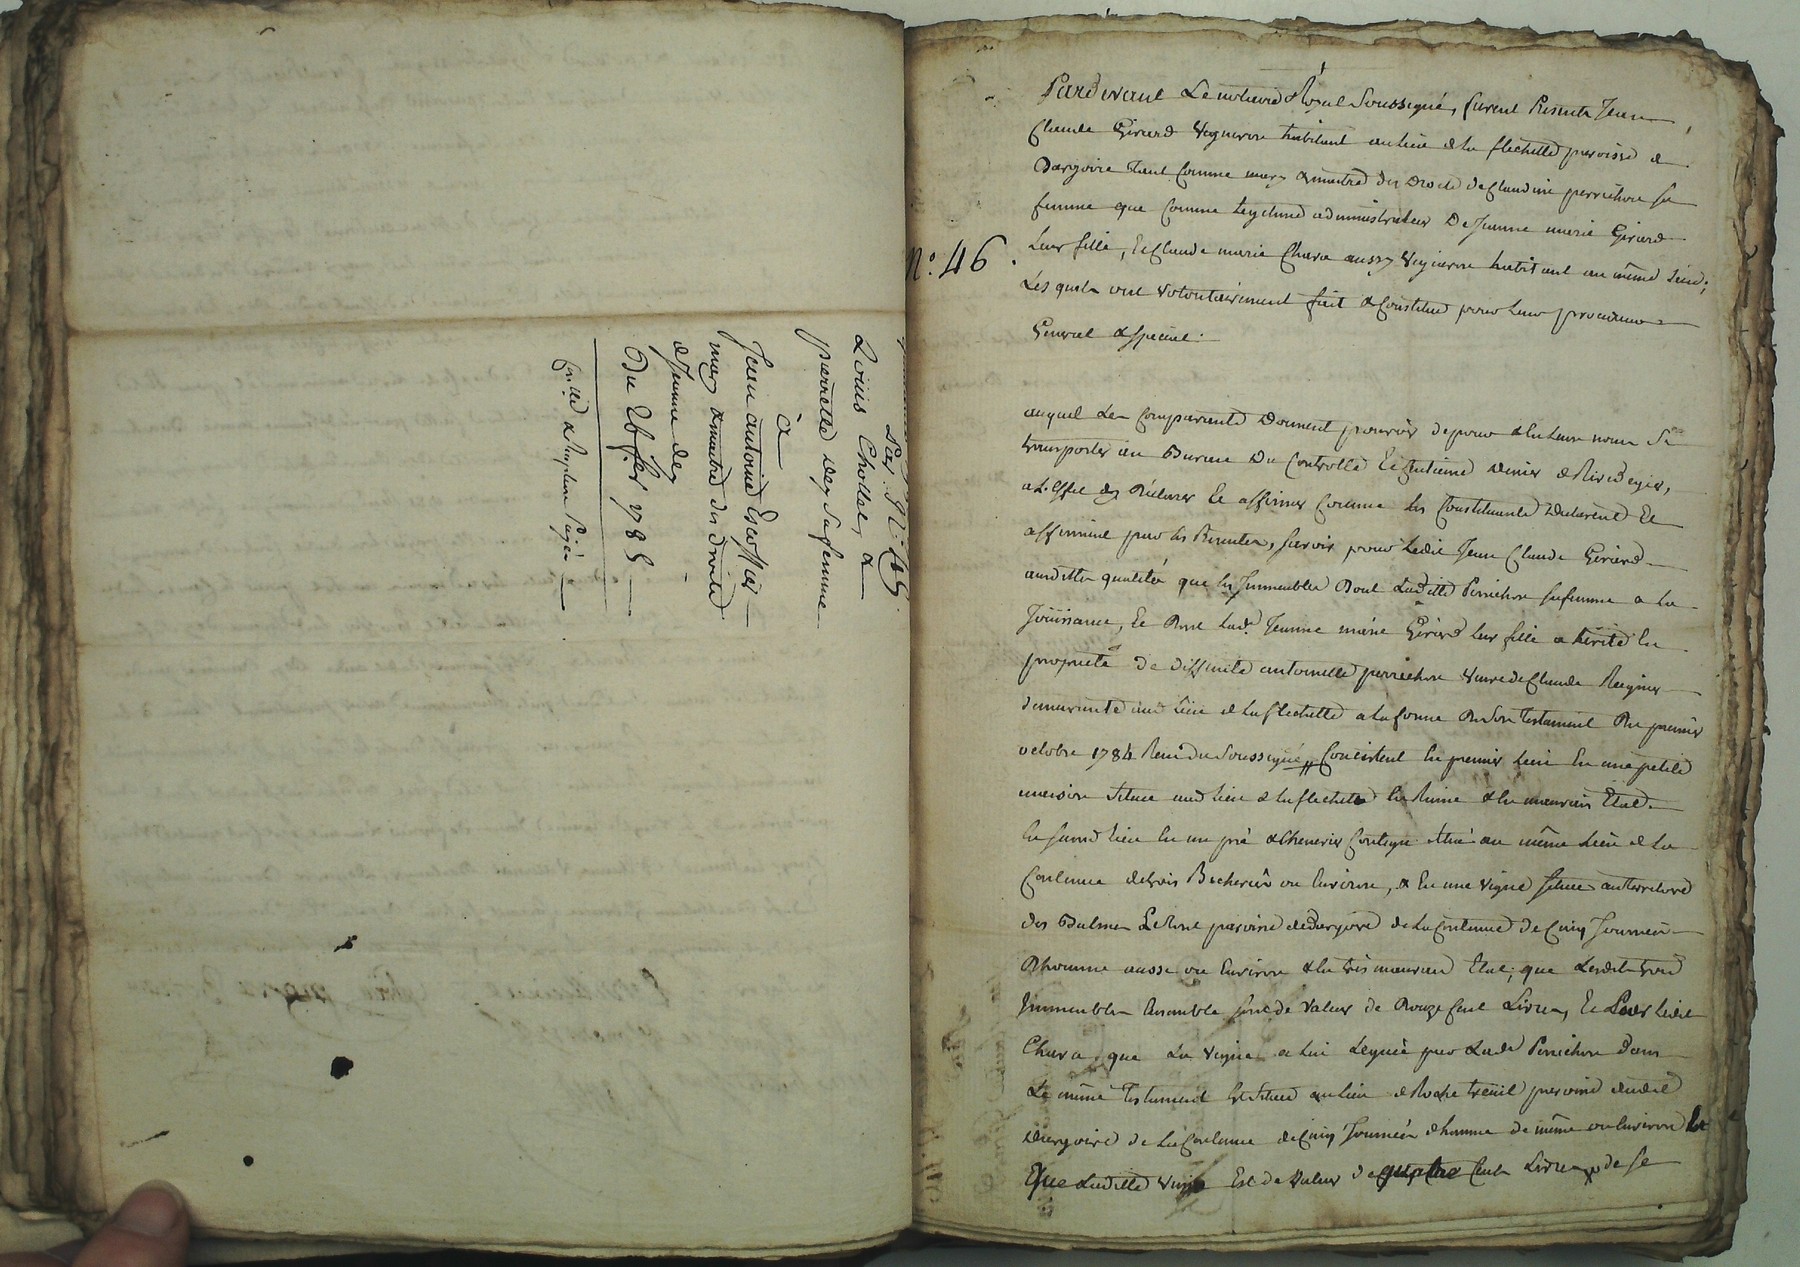 Par N.° 45.
Louis Chollet, &
pierrette Dey sa femme
à
Jean antoine Escoffier
mary & maitre des droits
de Jeanne dey
Du 26 fer 1785
N.° 46.
Pardevant Le notaire Royal soussigné, furent Presents Jean
Claude Girard Vigneron habitant au lieu de la flechette paroisse de
Dargoire tant comme mary & maitre des Droits de Claudine perrichon sa
femme que comme legitime administrateur De Jeanne marie Girard
leur fille, Et Claude marie Chara aussy Vigneron habitant au même Lieu;
Lesquels ont volontairement fait & Constitué pour leur procureur
General & special.
auquel Les Comparants Donnent pouvoir de pour & en leurs noms se
transporter au Bureau Du Controlle Et Centieme Denier de Rivedegier,
a L'effet dy Déclarer Et affirmer Comme les Constituants Declarent Et
affirment par les Presentes, sçavoir pour ledit Jean Claude Girard
ausdittes qualités que les Immeubles Dont Laditte Perrichon sa femme a La
Joüissance, Et Dont lad.e Jeanne marie Girard leur fille a hérité La
proprieté de deffunte antoinette perrichon Veuve de Claude Reynier
demeurante aud. Lieu de La flechette a la forme De son testament Du premier
octobre 1784 Reçu Du soussigné, Consistent En premier Lieu En une petite
maison située aud. lieu de la flechette En Ruine & En mauvais Etat.
En second Lieu En un pré & Chenevier Contigu situé au même Lieu de La
Contenue de trois Bicherées ou Environ, & En une vigne située au territoire
des Balmes Et Dont paroisse de Dargoire de La Contenue De Cinq Journées
D'homme aussi ou Environ & En très mauvais Etat; que Lesdits trois
Immeubles Ensemble sont de Valeur de Douze Cent Livres, Et Pour Ledit
Chara, que La Vigne a lui Leguée par Lade Perrichon dans
Le même Testament Est située au Lieu de Roche treuil paroisse dudit
Dargoire de La Contenue de Cinq Journées d'homme de même ou Environ Et
Que Laditte Vigne Est de Valeur de quatre Cent Livres, de se